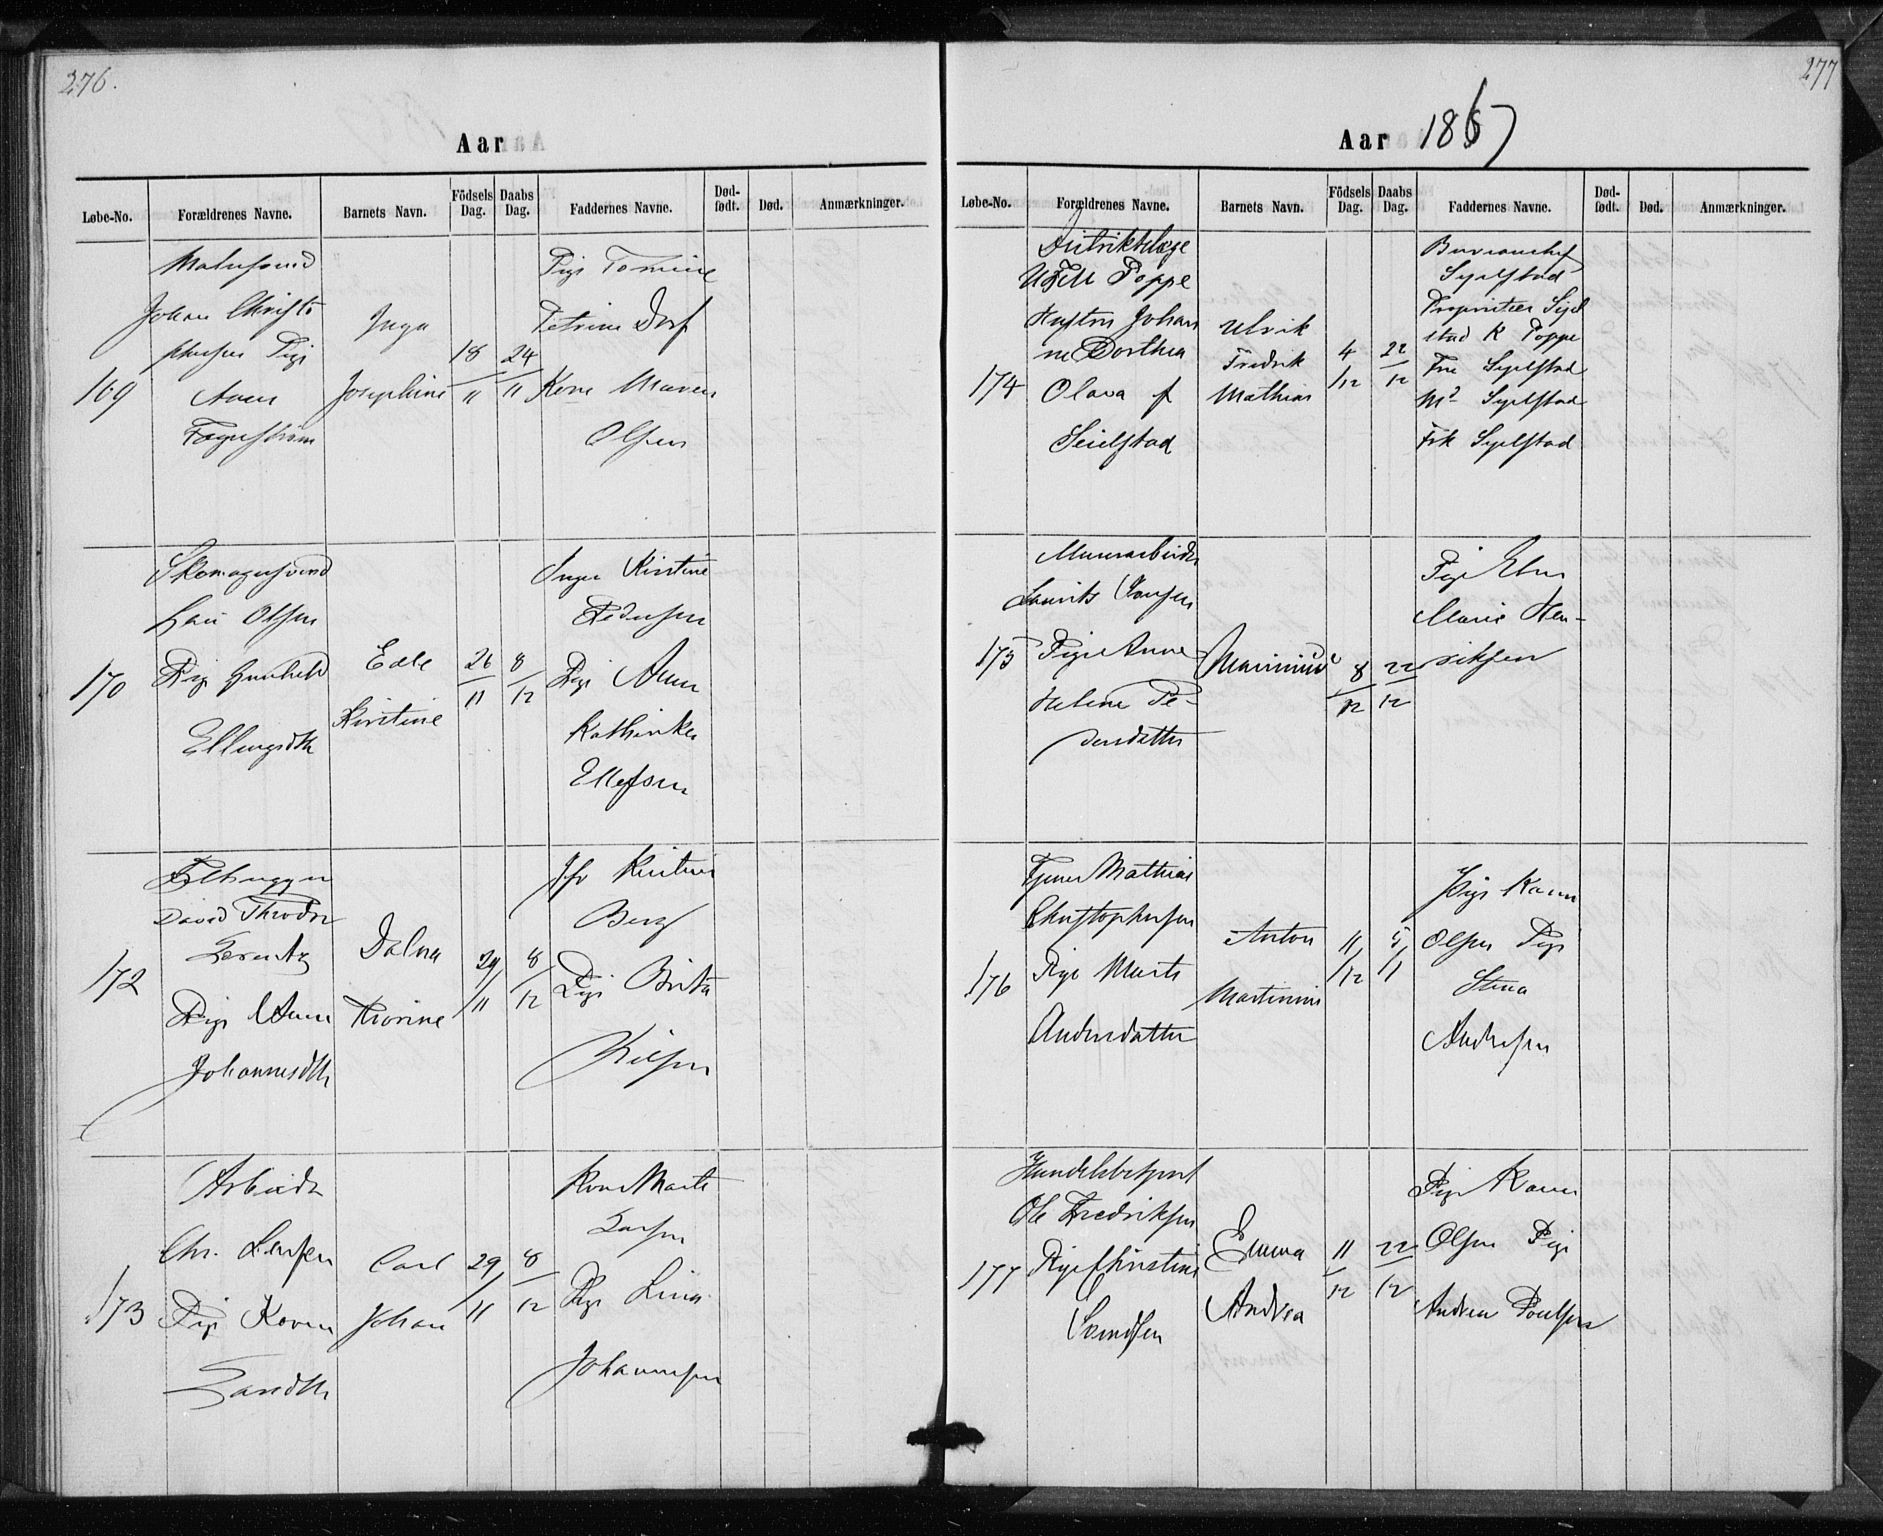 276.
Aar
Løbe-No. Forældrenes Navne. Barnets Navn. Födsels Dag. Daabs Dag. Faddernes Navne. Død-født. Død. Anmærkninger.
169
Malersvend
Johan Christo
phersen Pige
Anne
Fagerstrøm
Inga
Josephine
18/11
24/11
Pige Tomine
Petrine Dorf
Kone Maren
Olsen
170
Skomagersvend
Lars Olsen
Pige Gunhild
Ellingsdtr
Edle
Kirstine
26/11
8/12
Inger Kirstine
Pedersen
Pige Anne
Kathinka
Ellefsen
172
David Theodor
Lorentz
Pige Anne
Johannesdtr
Dalna
Thorine
29/11
8/12
Jfr Kirstine
Berg
Pige Brita
Nilsen
173
Arbeider
Chr. Larsen
Pige Karen
Larsdtr
Carl
Johan
29/11
8/12
Kone Marte
Larsen
Pige Lina
Johannesen
277
Aar 1867
Løbe-No. Forældrenes Navne. Barnets Navn. Födsels Dag. Daabs Dag. Faddernes Navne. Død-født. Død. Anmærkninger.
174
Distriktslæge
Poppe
Hustru Johan
ne Dorthea
Olava f
Seielstad
Ulrik
Fredrik
Mathias
4/12
22/12
Bureauchef
Syelstad
Proprietær Syel
stad K Poppe
Fru Syelstad
Md Syelstad
Frk Syelstad
175
Murerarbeider
Laurits Hansen
Pige Anne
Helene Pe-
dersdatter
8/12
22/12
Pige Elen
Marie Hen-
riksen
176
Tjener Mathias
Christophersen
Pige Marte
Andersdatter
Anton
Martinius
11/12
5/11
Pige Karen
Olsen Pige
Stina
Andresen
177
Handelsbetjent
Ole Fredriksen
Pige Christine
Svendsen
Emma
Andrea
11/12
22/12
Pige Karen
Olsen Pige
Andrea Poulsen